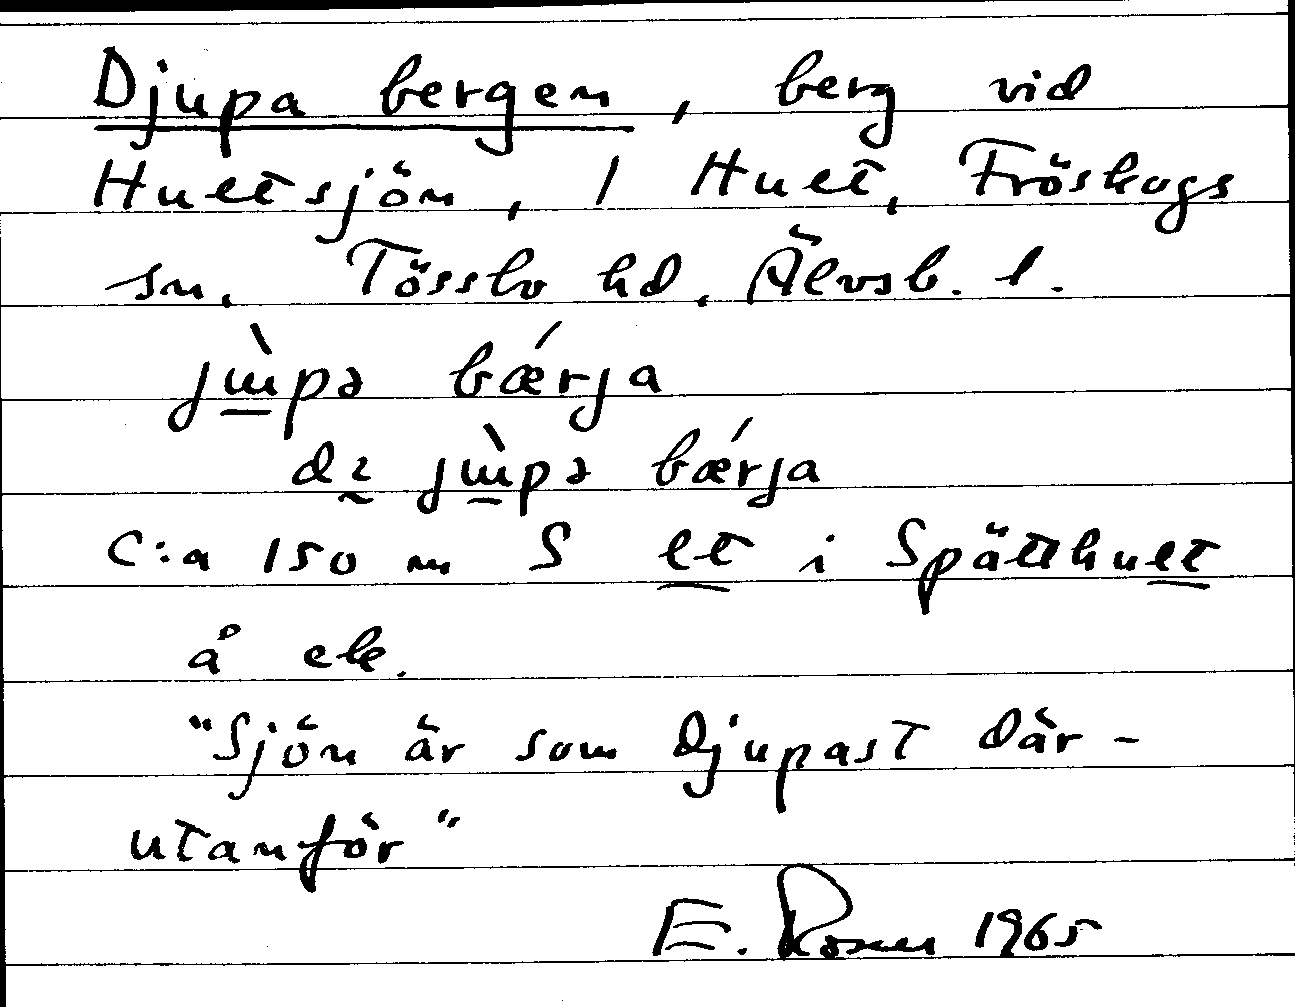 Djupa bergen, berg vid
Hultsjön, 1 Hult, Fröskogs
sn. Tössbo hd. Älvsb. l.
jɯ̀pə bǽrja
də jɯ̀pə bǽrja
c:a 150 m S lt i Spätthult
å ek.
"Sjön är som djupast där-
utanför"
E. Rosell 1965